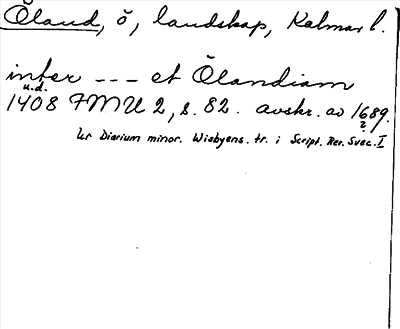 Öland, ö, landskap, Kalmar l.
inter --- et Ölandiam
u.d.
1408 FMU 2, s. 82. avskr. av 1689.
?
Ur Diarium minor. Wisbyens. tr. i Script. Rer. Svec. I